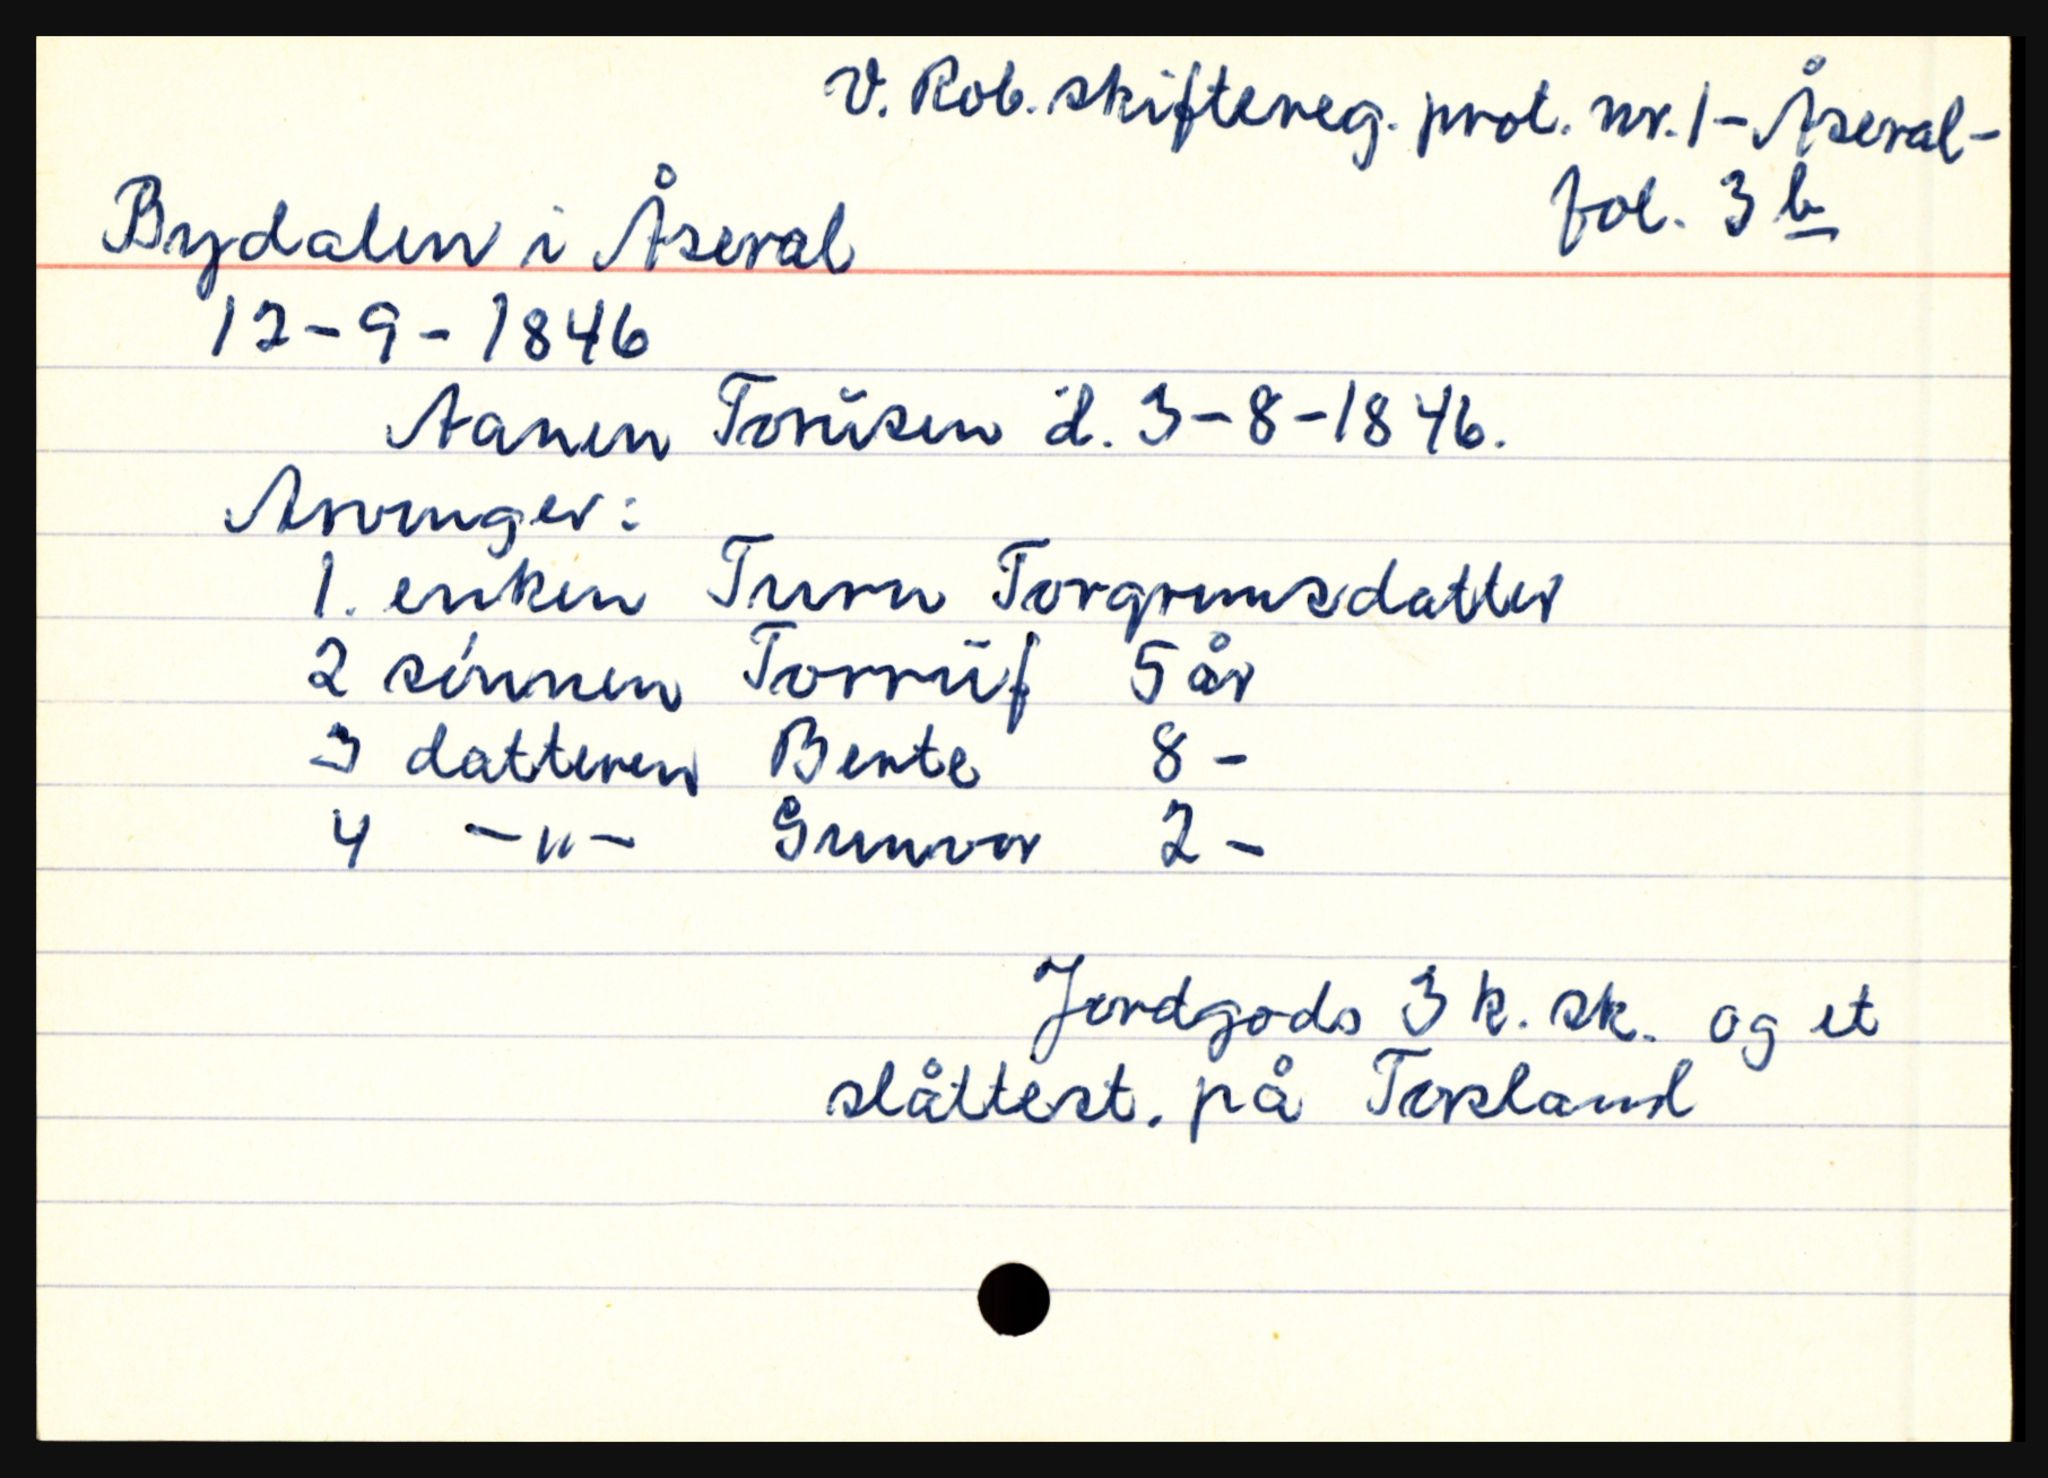 V. Rob. skiftereg. prot. nr. 1 - Åseral -
fol. 3 b
Bydalen i Åseral
12-9-1846
Aanen Toriisen d. 3-8-1846.
Arvinger:
1. enken Turu Torgrimsdatter
2 sønnen Torriif 5 år
3 datteren Berte 8 -
4 -"- Gunvor 2 -
Jordgods 3 k. sk. og et
slåttest. på Torsland